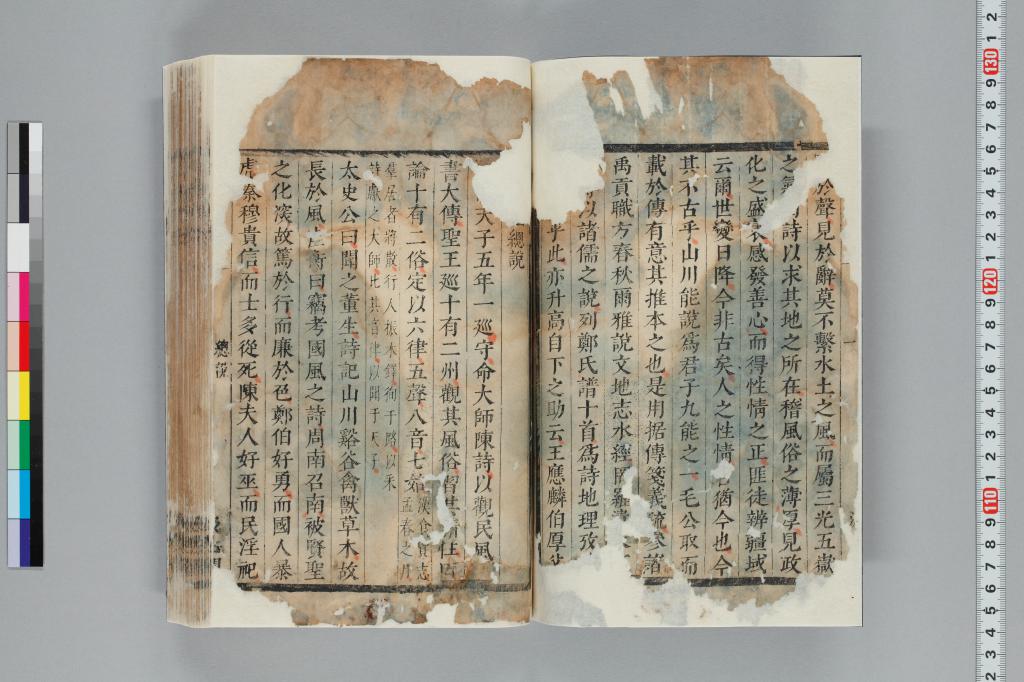 於聲見於辭莫不繫水土之風而屬三光五嶽
之 詩以求其地之所在稽風俗之薄厚見政
化之盛衰感發善心而得性情之正匪徒辨疆域
云爾世變日降今非古矣人之性情 猶今也今
其不古乎山川能說爲君子九能之一毛公取而
載於傳有意其推本之也是用据傳箋義疏參諸
禹貢職方春秋爾雅說文地志水經
以諸儒之說列鄭氏譜十首爲詩地理攷
乎此亦升高自下之助云王應麟伯厚
總說
天子五年一巡守命大師陳詩以觀民風
書大傳聖王巡十有二州觀其風俗習
論十有二俗定以六律五聲八音七始
漢食貨志
孟春之月
羣居者將散行人振木鐸徇于路以采
詩獻之大師比其音律以聞于天子
太史公曰聞之董生詩記山川谿谷禽獸草木故
長於風 衡曰竊考國風之詩周南召南被賢聖
之化深故篤於行而廉於色鄭伯好勇而國人暴
虎秦穆貴信而士多從死陳夫人好巫而民淫祀
總說